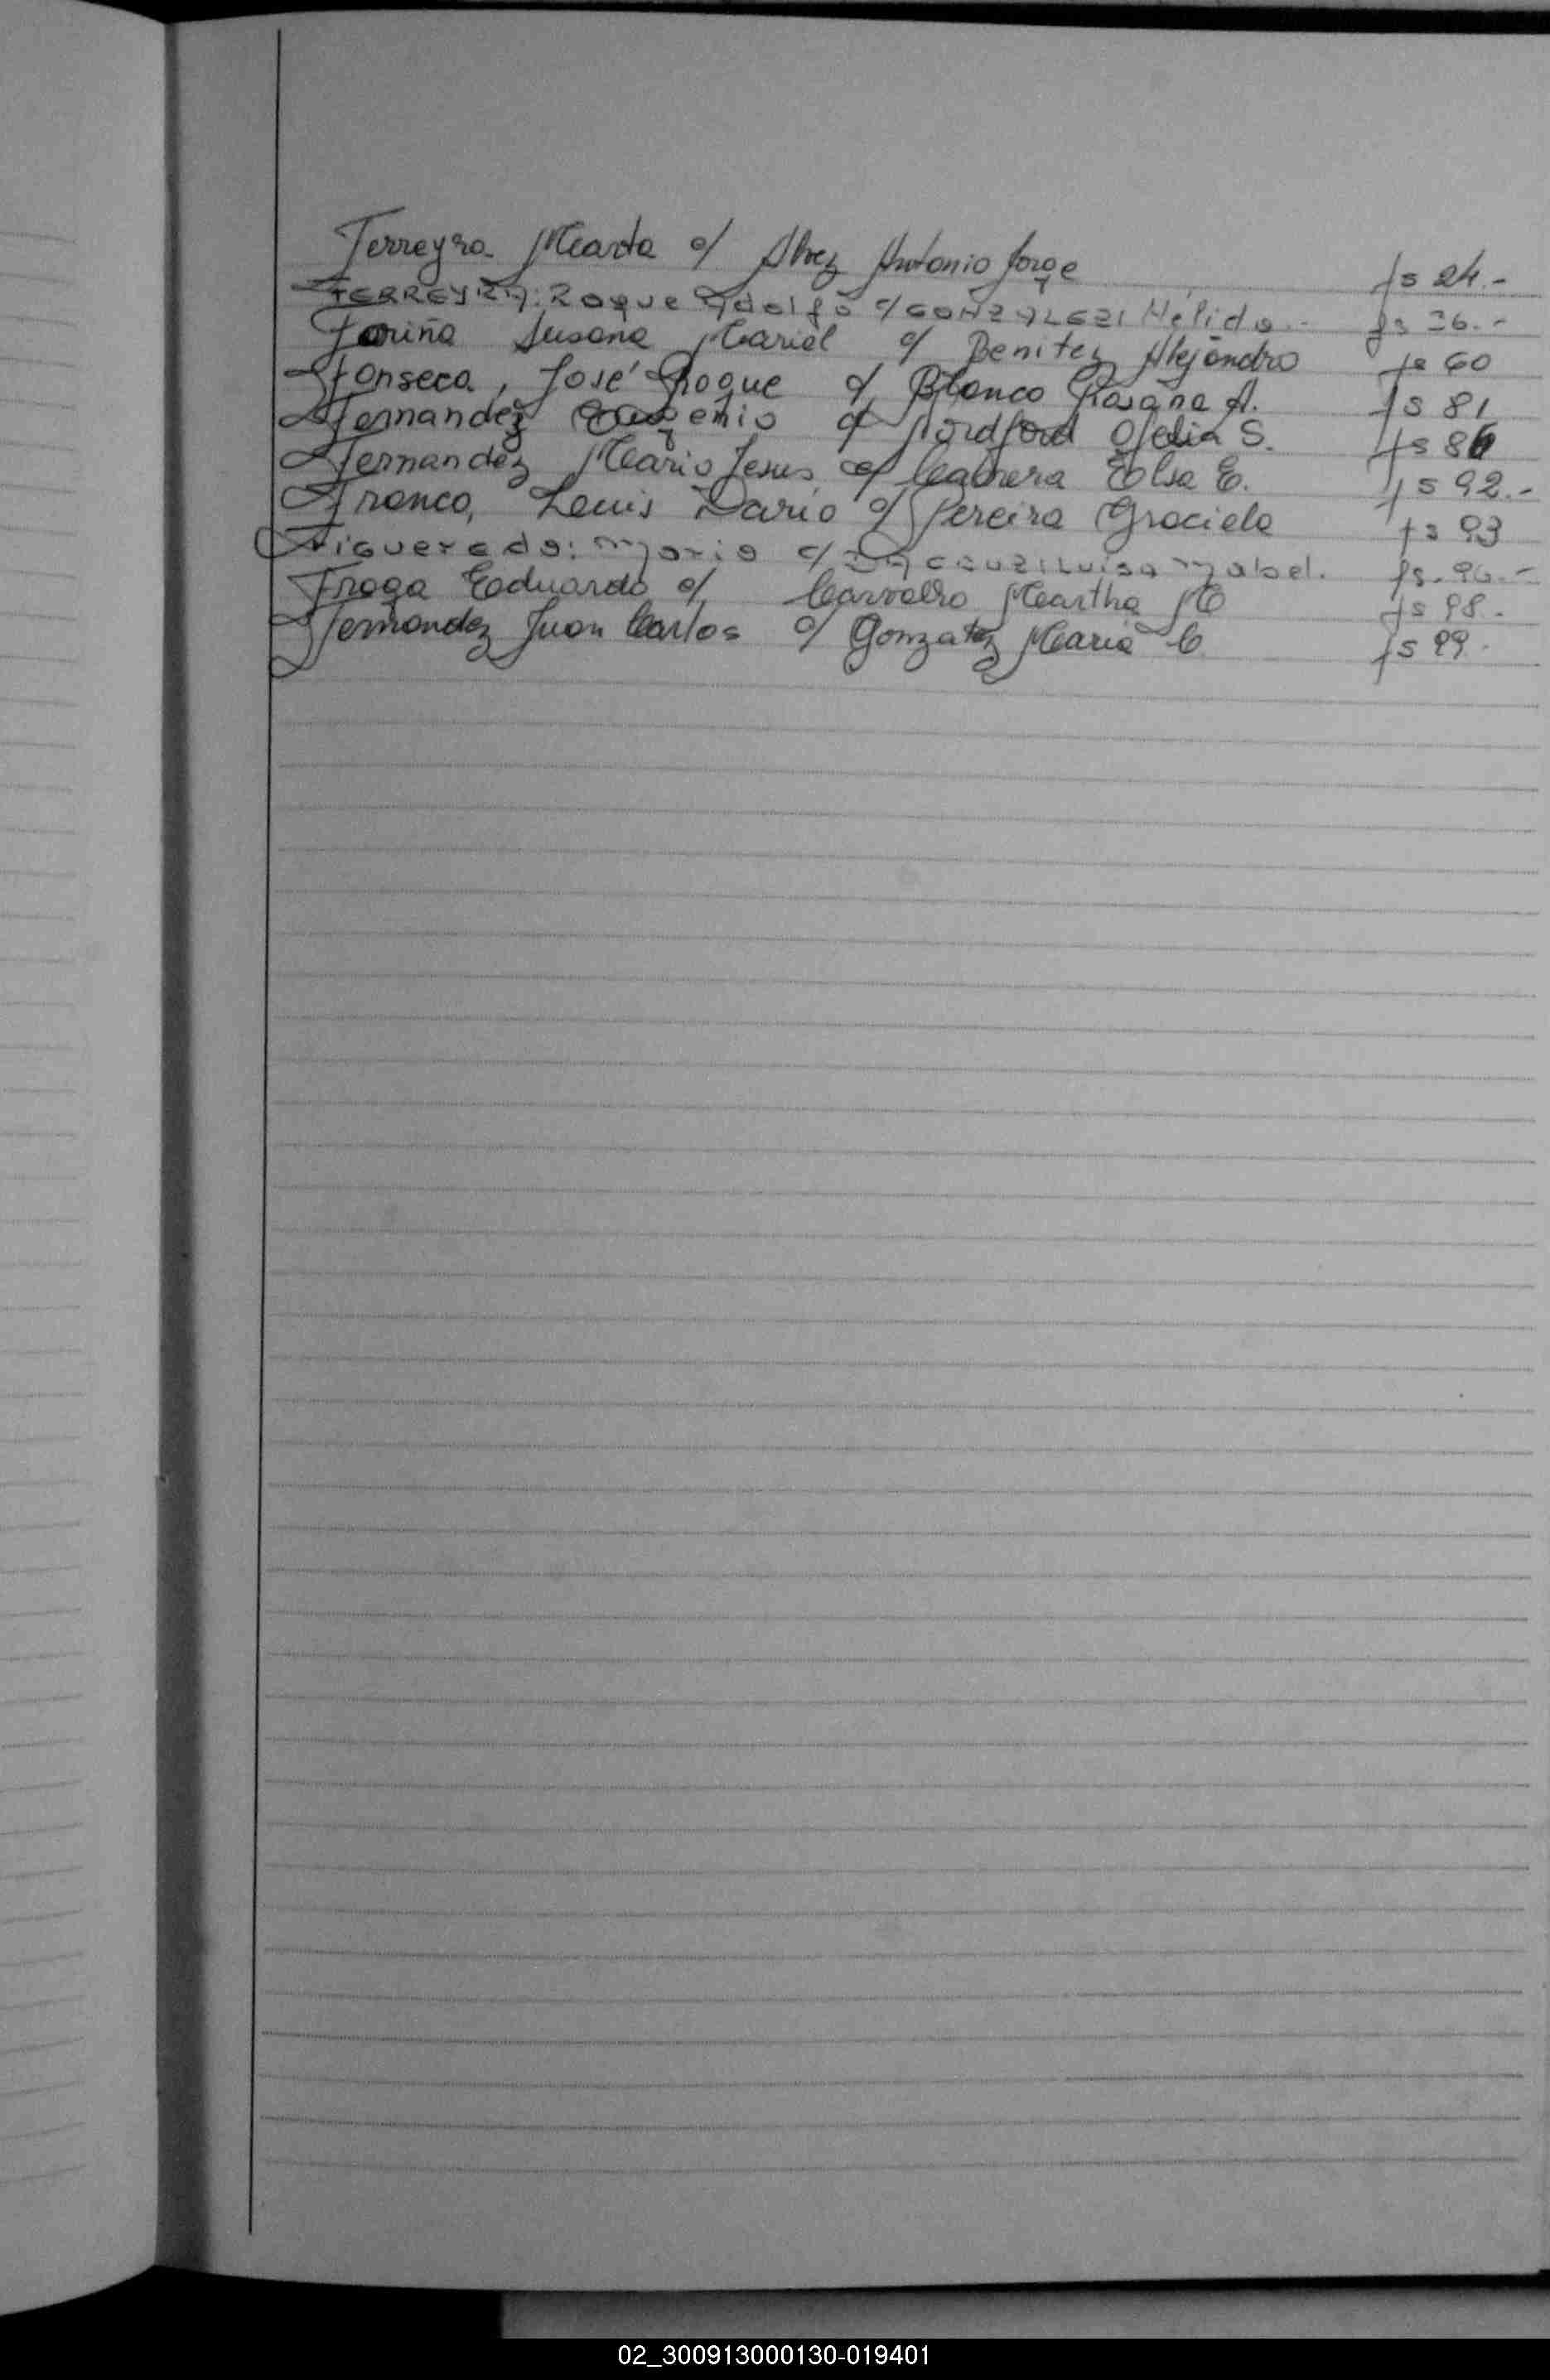 Ferreyra Marta c/ Alvez Antonio Jorge fs 24.-
FERREYRA: Roque Adolfo c/ GONZALEZ: Nélida.- fs 36.-
Fariña Susana Mariel c/ Benitez Alejandro fs 60
Fonseca, José Roque c/ Blanco Rosana A. fs 81
Fernandez Eugenio c/ Nordford Ofelia S. fs 86
Fernandez Mario Jesus c/ Cabrera Elsa E. fs 92.-
Franco, Luis Dario c/ Pereira Graciela fs 93
Figueredo: Mario c/ DA CRUZ: Luisa Mabel. fs. 96.-
Fraga Eduardo c/ Carvallro Martha M fs 98.-
Fernandez Juan Carlos c/ Gonzalez Maria C fs 99.-
02_300913000130-019401